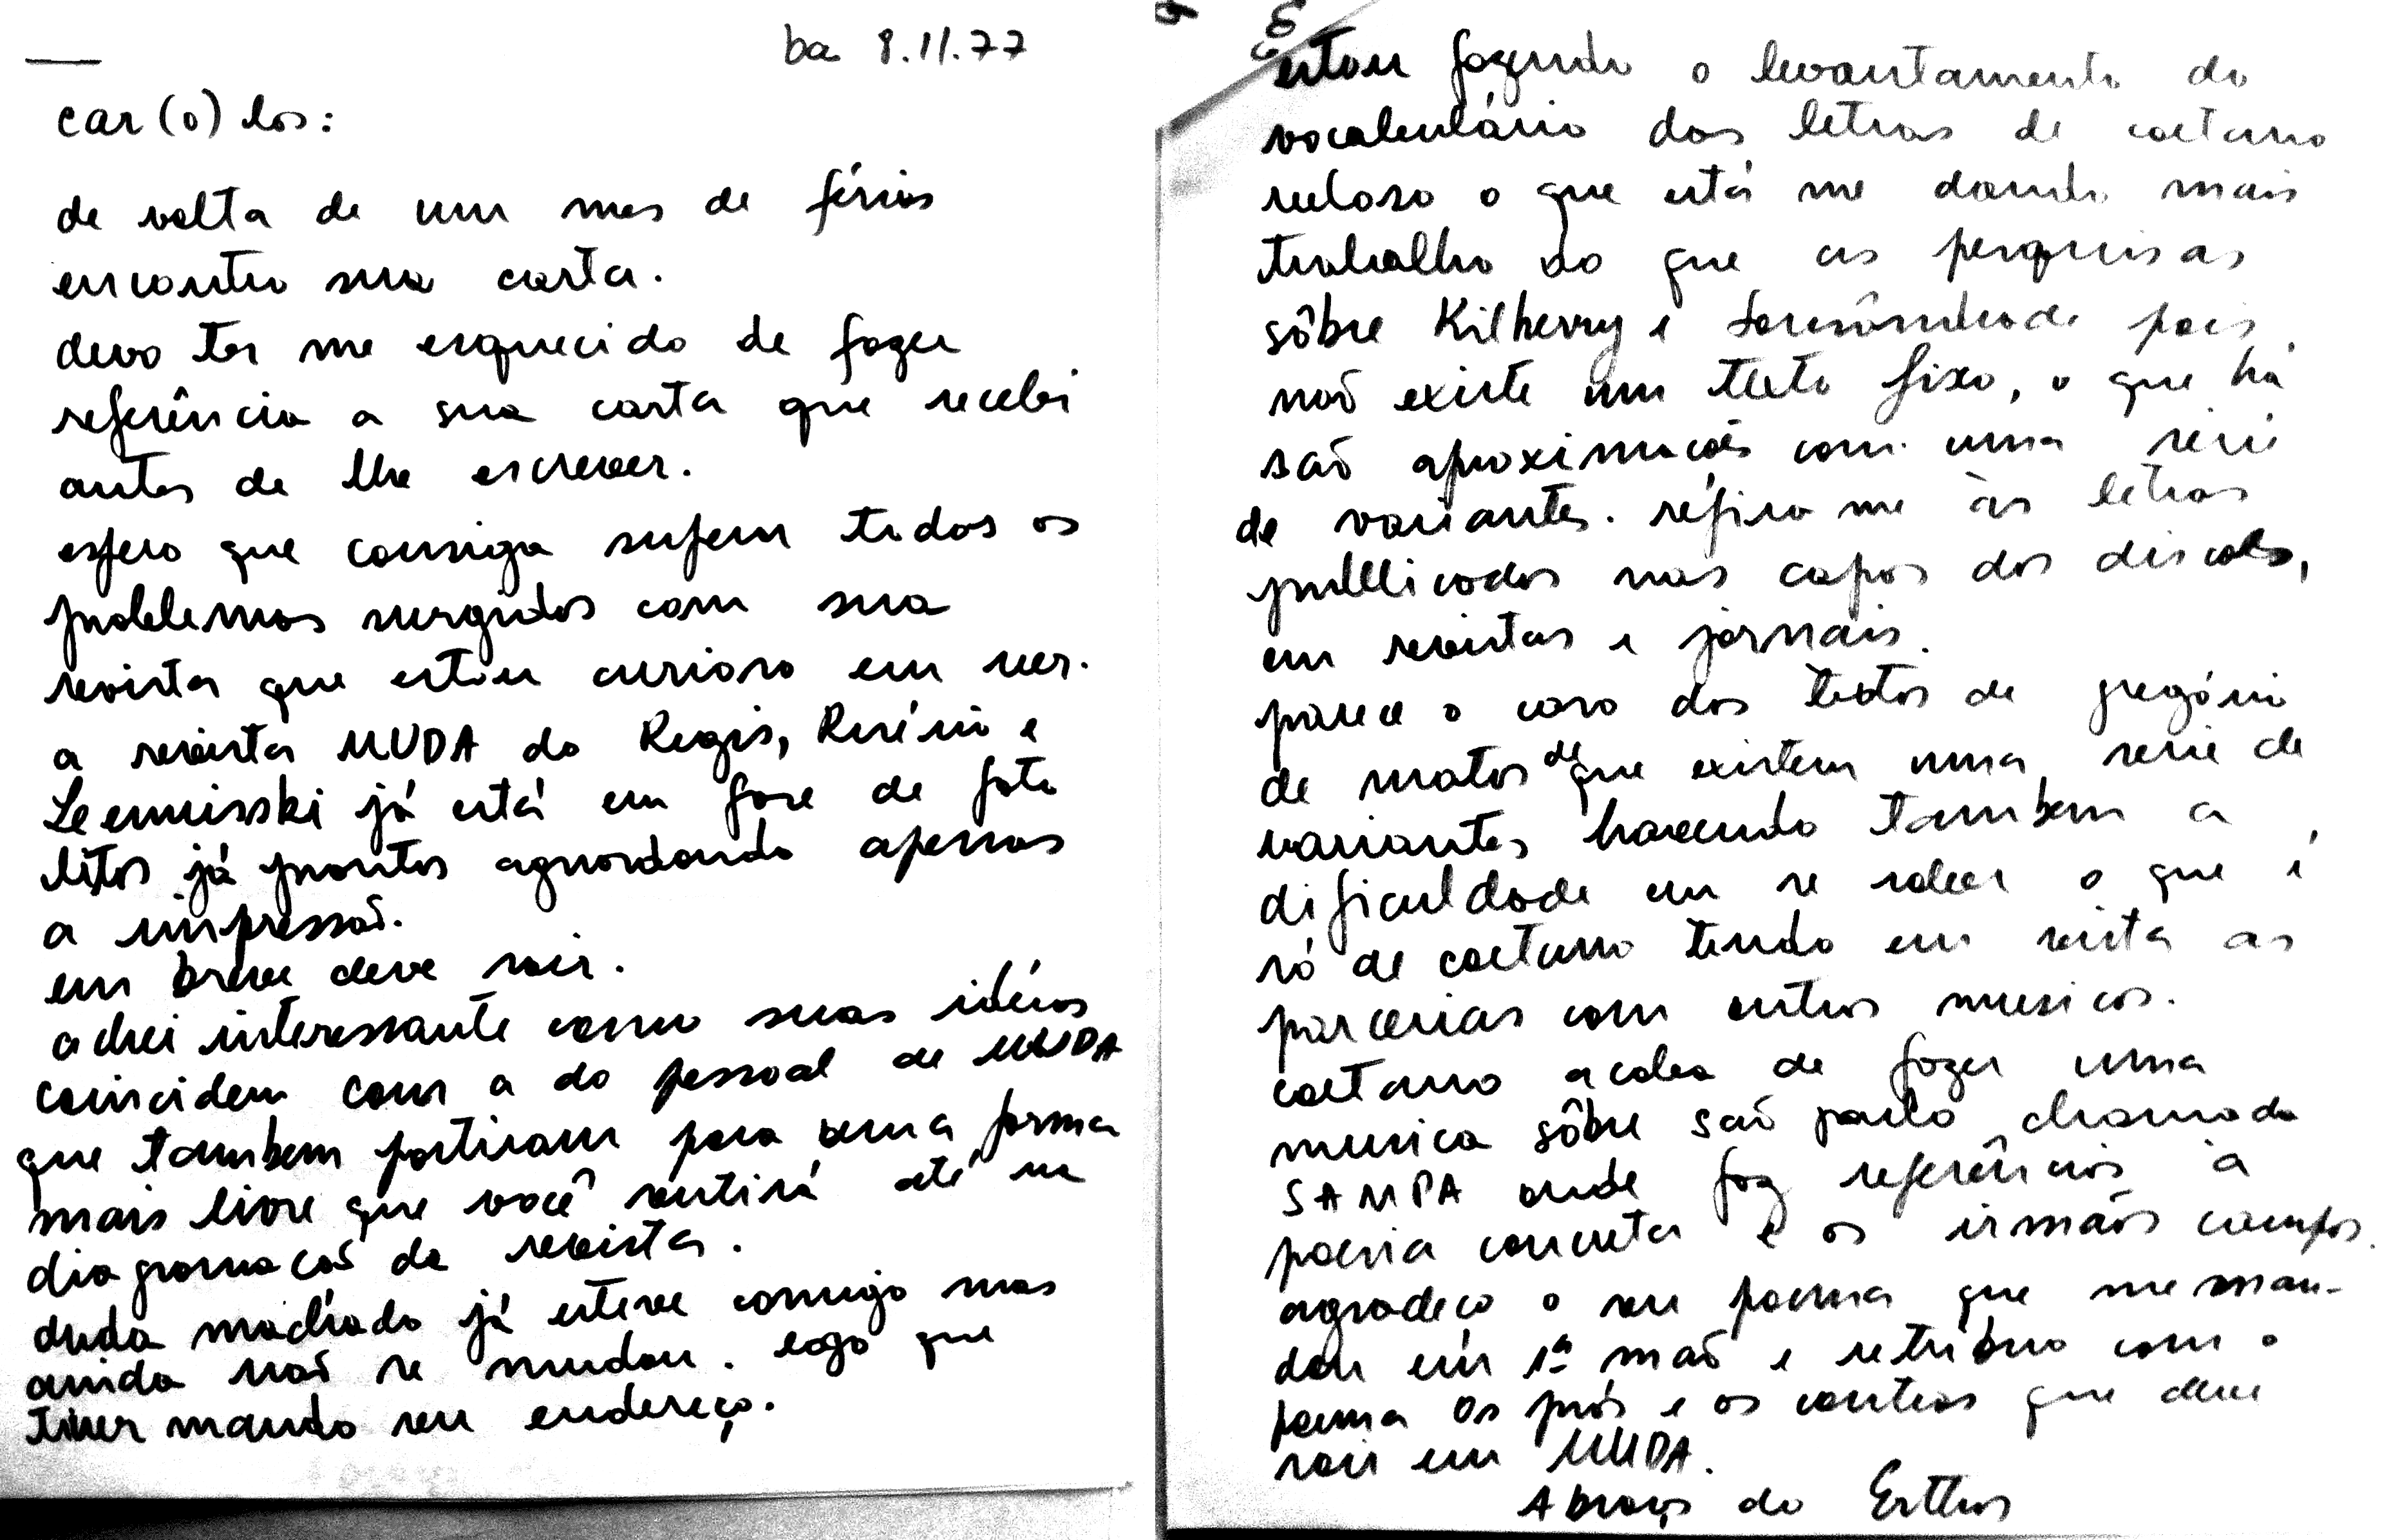 ba 8.11.77
car(o)los:
de volta de um mes de férias
encontro sua carta.
devo ter me esquecido de fazer
referência a sua carta que recebi
antes de lhe escrever.
espero que consiga superar todos os
problemas surgidos com sua
revista que estou curioso em ver.
a revista MUDA do Regis, Risério e
Leminski já está em fase de foto
litos já prontos aguardando apenas
a impressaõ.
em breve deve sair.
achei interessante como suas idéias
coincidem com a do pessoal de MUDA
que tambem partiram para uma forma
mais livre que você sentirá até na
diagramacaõ da revista.
duda machado já esteve comigo mas
ainda naõ se mudou. logo que
tiver mando seu endereço.
estou fazendo o levantamento do
vocabulário das letras de caetano
veloso o que está me dando mais
trabalho do que as pesquisas
sôbre Kilkerry e Sousândrade pois
naõ existe um texto fixo, o que há
saõ aproximacões com uma serie
de variantes. refiro me às letras
publicadas nas capas dos discos,
em revistas e jornais.
parece o caso dos textos de gregório
de matos de que existem uma serie de
variantes havendo tambem a
dificuldade em se saber o que é
só de caetano tendo em vista as
parcerias com outros musicos.
caetano acaba de fazer uma
musica sôbre saõ paulo chamada
SAMPA onde faz referências à
poesia concreta e os irmaõs campos.
agradeco o seu poema que me man-
dou em 1ª maõ e retribuo com o
poema os prós e os contras que deve
sair em MUDA.
Abraços do Erthos